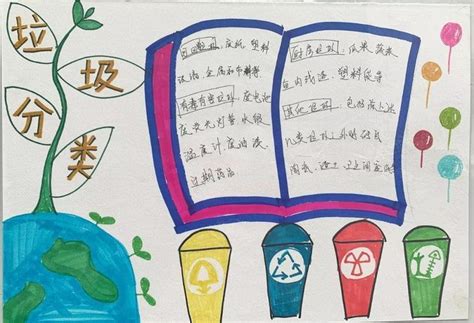 垃圾分类
可回收物：废纸、塑料
玻璃、金属和布料等
有毒有害垃圾：废电池
废荧光灯管 水银
温度计、废油漆
过期药品
厨房垃圾：瓜果 蔬菜
鱼肉残渣
其他垃圾：包括除上述
几类垃圾外的
陶瓷、渣土、卫生间废纸